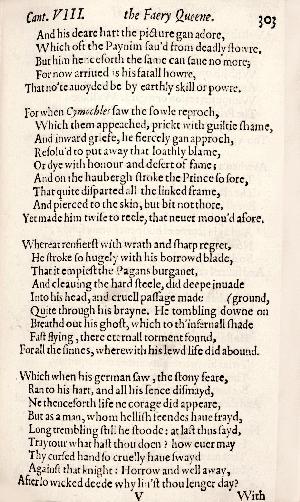 Cant. VIII. the Faery Queene. 303
And his deare hart the picture gan adore,
Which oft the Paynim sau'd from deadly stowre.
But him henceforth the same can saue no more;
For now arriued is his fatall howre,
That no'te auoyded be by earthly skill or powre.
For when Cymochles saw the fowle reproch,
Which them appeached, prickt with guiltie shame,
And inward griefe, he fiercely gan approch,
Resolu'd to put away that loathly blame,
Or dye with honour and desert of fame;
And on the haubergh stroke the Prince so sore,
That quite disparted all the linked frame,
And pierced to the skin, but bit not thore,
Yet made him twise to reele, that neuer moou'd afore.
Whereat renfierst with wrath and sharp regret,
He stroke so hugely with his borrowd blade,
That it empierst the Pagans burganet,
And cleauing the hard steele, did deepe inuade
Into his head, and cruell passage made (ground,
Quite through his brayne. He tombling downe on
Breathd out his ghost, which to th'infernall shade
Fast flying, there eternall torment found,
For all the sinnes, wherewith his lewd life did abound.
Which when his german saw, the stony feare,
Ran to his hart, and all his sence dismayd,
Ne thenceforth life ne corage did appeare,
But as a man, whom hellish feendes haue frayd,
Long trembling still he stoode: at last thus sayd,
Traytour what hast thou doen? how euer may
Thy cursed hand so cruelly haue swayd
Against that knight: Horrow and well away,
After so wicked deede why liu'st thou lenger day?
V With